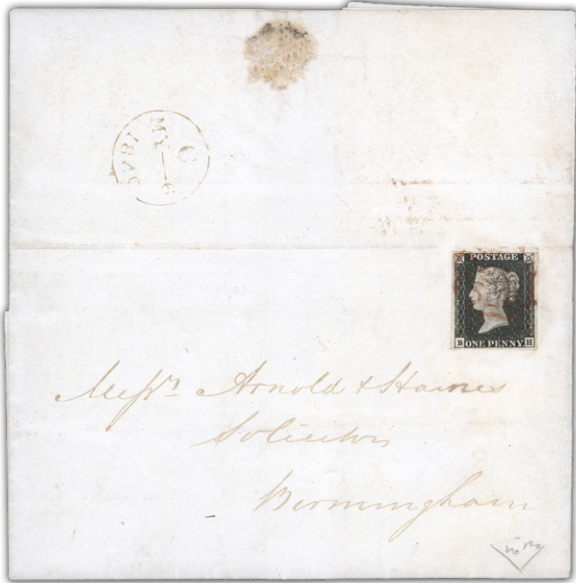 C
MY 9
1840
POSTAGE
ONE PENNY
Messrs Arnold & Haines
Solicitors
Birmingham